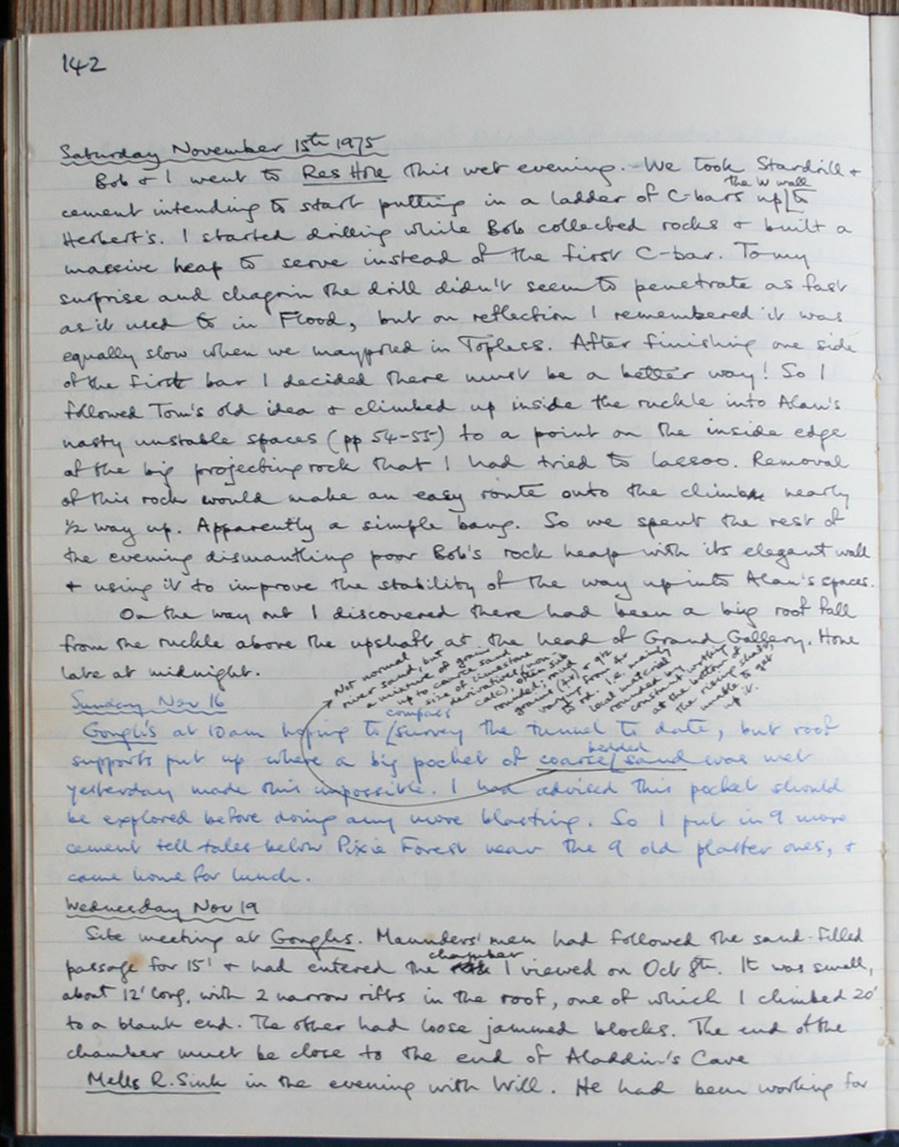 142
Saturday November 15th 1975
Bob & I went to Res Hole this wet evening. We took Stardrill &
cement intending to start putting in a ladder of C-bars up the W wall to
Herbert's. I started drilling while Bob collected rocks & built a
massive heap to serve instead of the first C-bar. To my
surprise and chagrin the drill didn't seem to penetrate as fast
as it used to in Flood, but on reflection I remembered it was
equally slow when we maypoled in Topless. After finishing one side
of the first bar I decided there must be a better way! So I
followed Tom's old idea & climbed up inside the ruckle into Alan's
nasty unstable spaces (pp 54-55) to a point on the inside edge
of the big projecting rock that I had tried to lassoo. Removal
of this rock would make an easy route onto the climb nearly
½ way up. Apparently a simple bang. So we spent the rest of
the evening dismantling poor Bob's rock heap with its elegant wall
& using it to improve the stability of the way up into Alan's spaces.
On the way out I discovered there had been a big roof fall
from the ruckle above the upshaft at the head of Grand Gallery. Home
late at midnight.
Not normal
river sand, but
a mixture of grains
up to coarse sand
size of limestone
derivatives (non
calc), often sub
rounded, mud
grains (?) & qtz
varying from
to rd. i.e. mainly
local material
rounded by
constant
at the bottom of
the rising shaft,
unable to get
up it.
Sunday Nov 16
Gough's at 10am hoping to compass survey the tunnel to date, but roof
supports put up where a big pocket of coarse bedded sand was met
yesterday made this impossible. I had advised this pocket should
be explored before doing any more blasting. So I put in 9 more
cement tell tales below Pixie Forest near the 9 old plaster ones, &
came home for lunch.
Wednesday Nov 19
Site meeting at Goughs. Maunders' men had followed the sand-filled
passage for 15' & had entered the chamber I viewed on Oct 8th. It was small,
about 12' long, with 2 narrow rifts in the roof, one of which I climbed 20'
to a blank end. The other had loose jammed blocks. The end of the
chamber must be close to the end of Aladdin's Cave
Mells R. Sink in the evening with Will. He had been working for